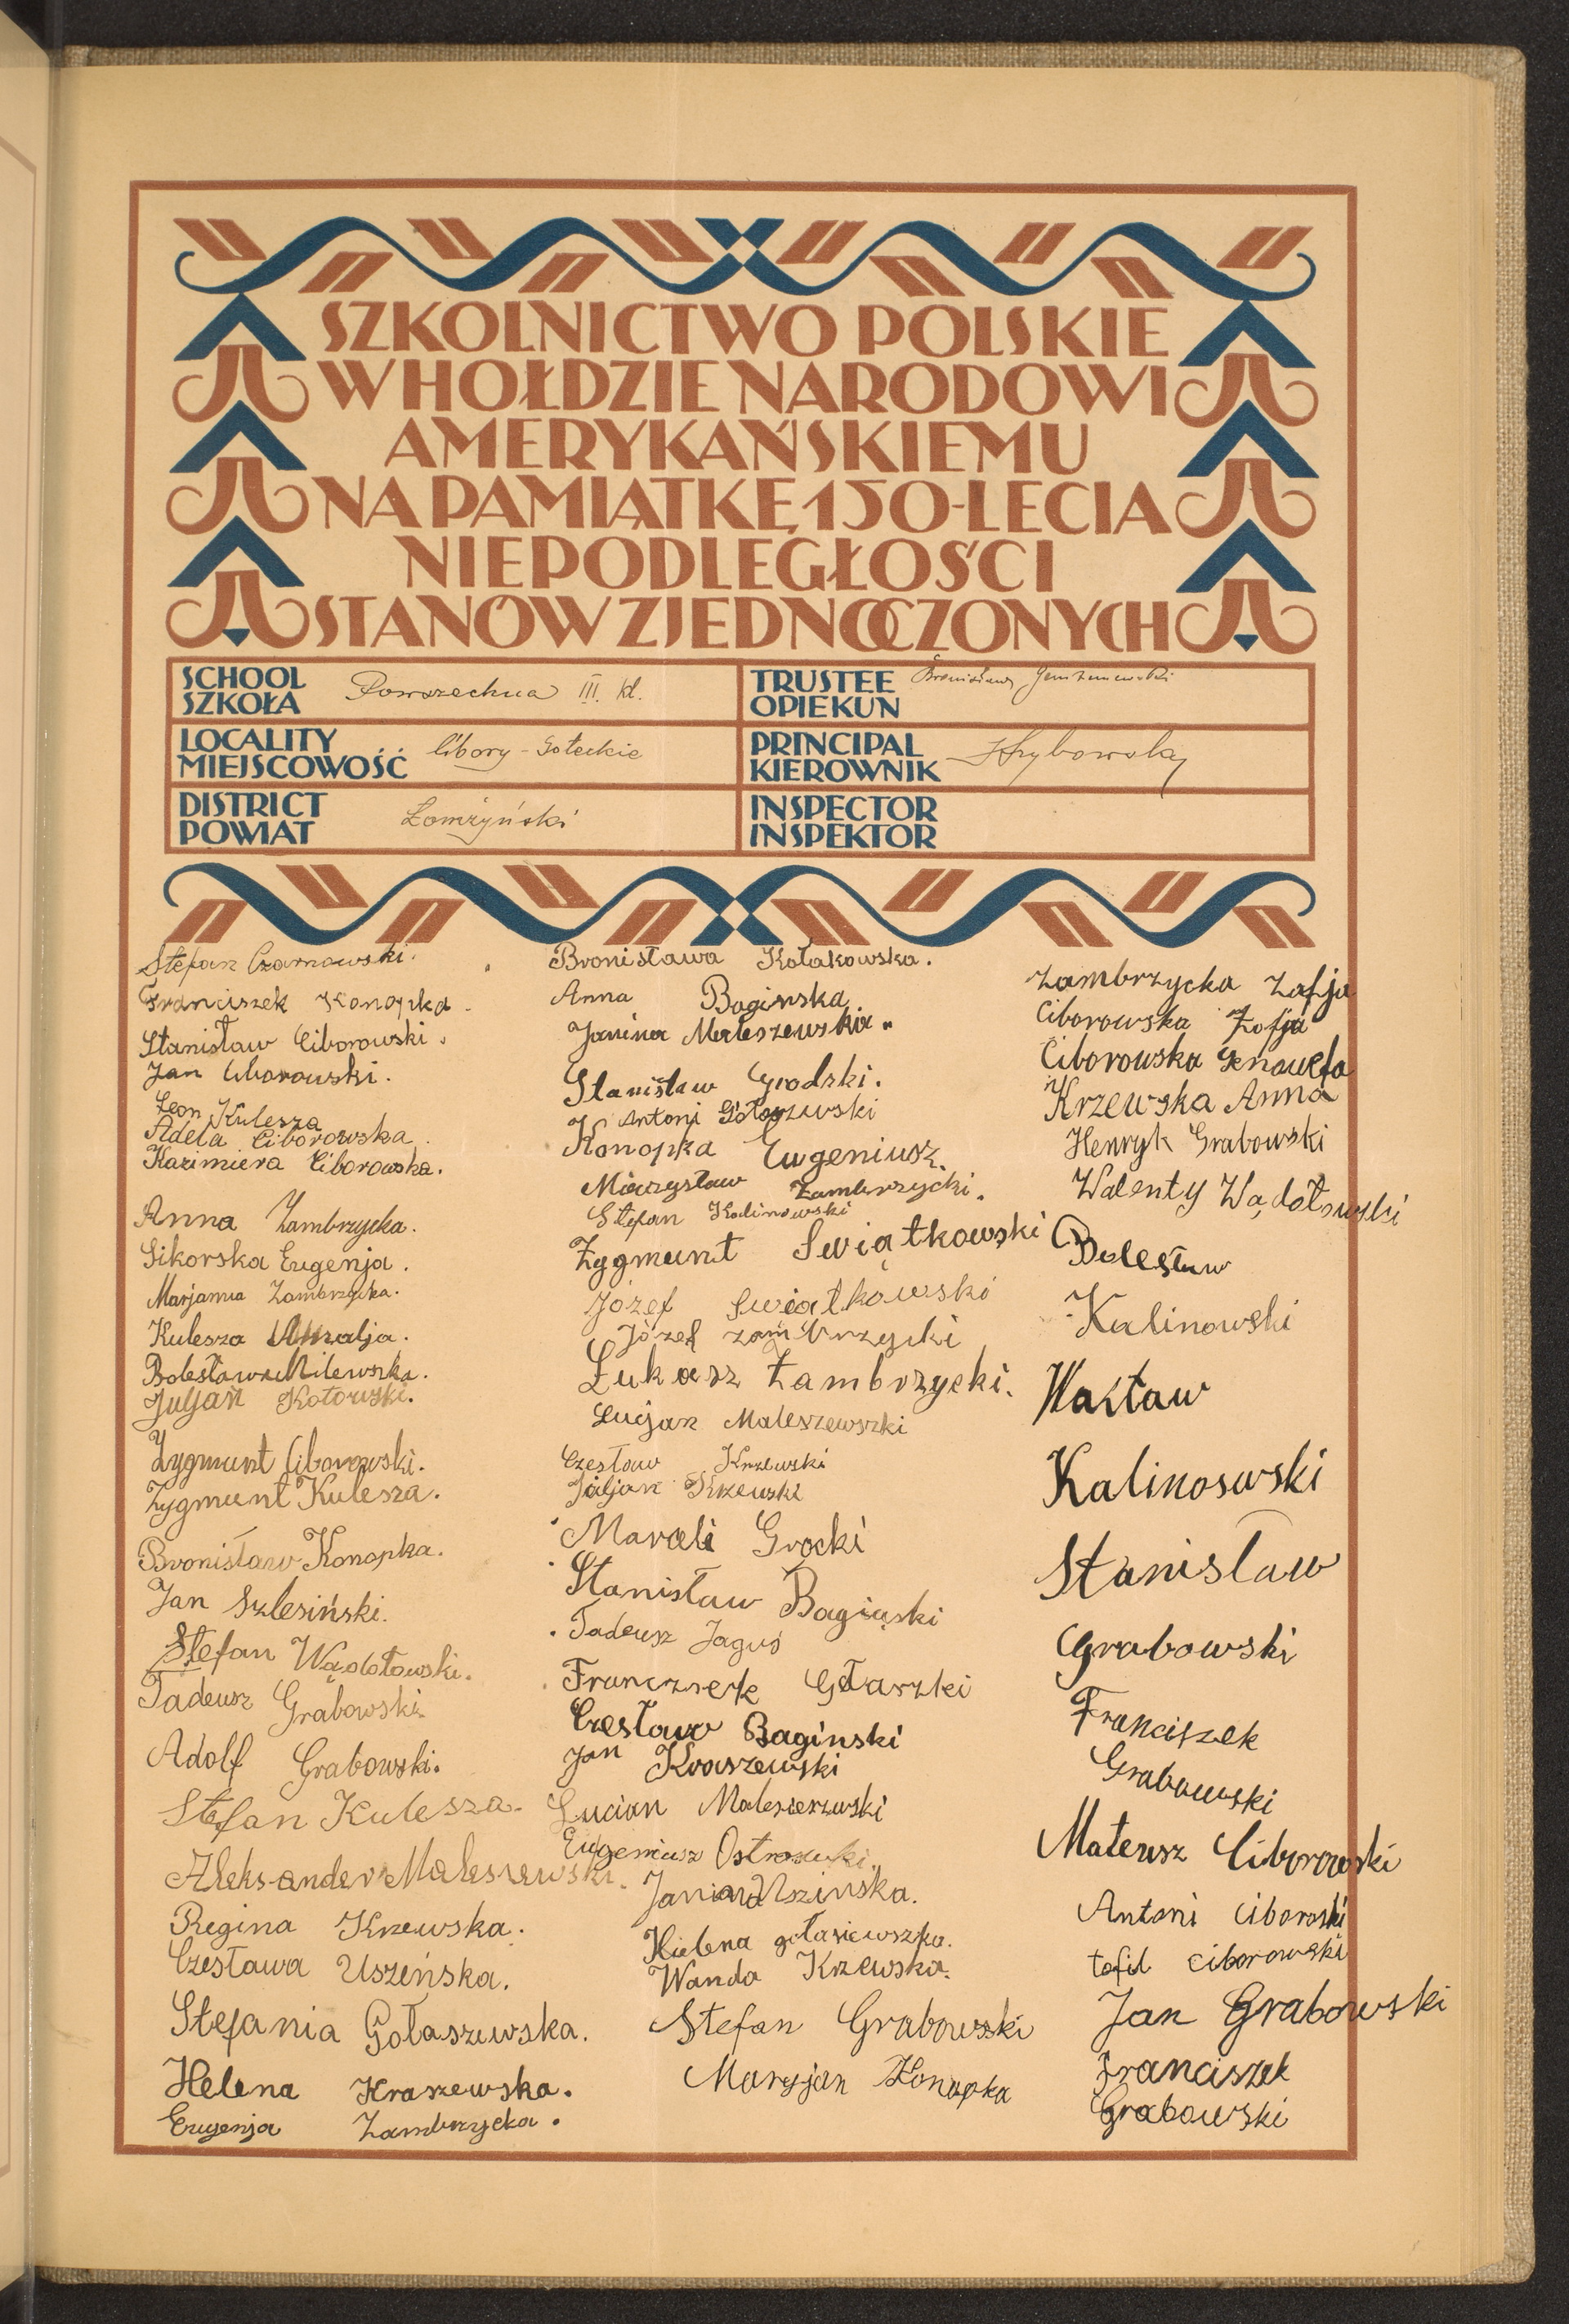 SZKOLNICTWO POLSKIE
W HOŁDZIE NARODOWI
AMERYKAŃSKIEMU
NA PAMIĄTKĘ 150-LECIA
NIEPODLEGŁOŚCI
STANÓW ZJEDNOCZONYCH
SCHOOL
SZKOŁA
Powszechna III. kl.
TRUSTEE
OPIEKUN
Bronisław
LOCALITY
MIEJSCOWOŚĆ
Cibory-Gołeckie
PRINCIPAL
KIEROWNIK
DISTRICT
POWIAT
Łomżyński
INSPECTOR
INSPEKTOR
Stefan Czarnowski.
Franciszek Konopka.
Stanisław Ciborowski.
Jan Ciborowski.
Leon Kulesza
Adela Ciborowska.
Kazimiera Ciborowska.
Anna Zambrzycka.
Sikorska Eugenja.
Marjanna Zambrzycka.
Kulesza
Bolesława Milewska.
Juljan Kotowski.
Zygmunt Ciborowski.
Zygmunt Kulesza.
Bronisław Konopka.
Jan Szlesiński.
Stefan Wądołowski.
Tadeusz Grabowski
Adolf Grabowski.
Stefan Kulesza.
Aleksander Maleszewski.
Regina Krzewska.
Czesława Uszeńska.
Stefania Gołaszewska.
Helena Kraszewska.
Eugenja Zambrzycka.
Bronisława Kołakowska.
Anna Baginska.
Janina Maleszewska.
Stanisław Grodzki.
Antoni Gołaszewski
Konopka Eugeniusz.
Mieczysław Zambrzycki.
Stefan Kalinowski
Zygmunt Swiątkowski
Józef Swiątkowski
Józef Zambrzycki
Łukasz Zambrzycki.
Lucjan Maleszewszki
Czesław Krzewski
Juljan Krzewski
Marceli Grocki
Stanisław Bagiński
Tadeusz Jaguś
Franczsek Głaszki
Czesław Baginski
Jan Kraszewski
Lucian Maleszerzwski
Eugeniusz
Janina Uszinska.
Hielena gołasiewszka.
Wanda Krzewska.
Stefan Grabowski
Maryjan Konopka
Zambrzycka Zofja
Ciborowska Zofja
Ciborowska Genowefa
Krzewska Anna
Henryk Grabowski
Walenty Wądołowski
Bolesław
Kalinowski
Wacław
Kalinoswski
Stanisław
Grabowski
Franciszek
Grabowski
Mateusz Ciborowski
Antoni Ciboroski
tofil Ciborowski
Jan Grabowski
Franciszek
Grabowski